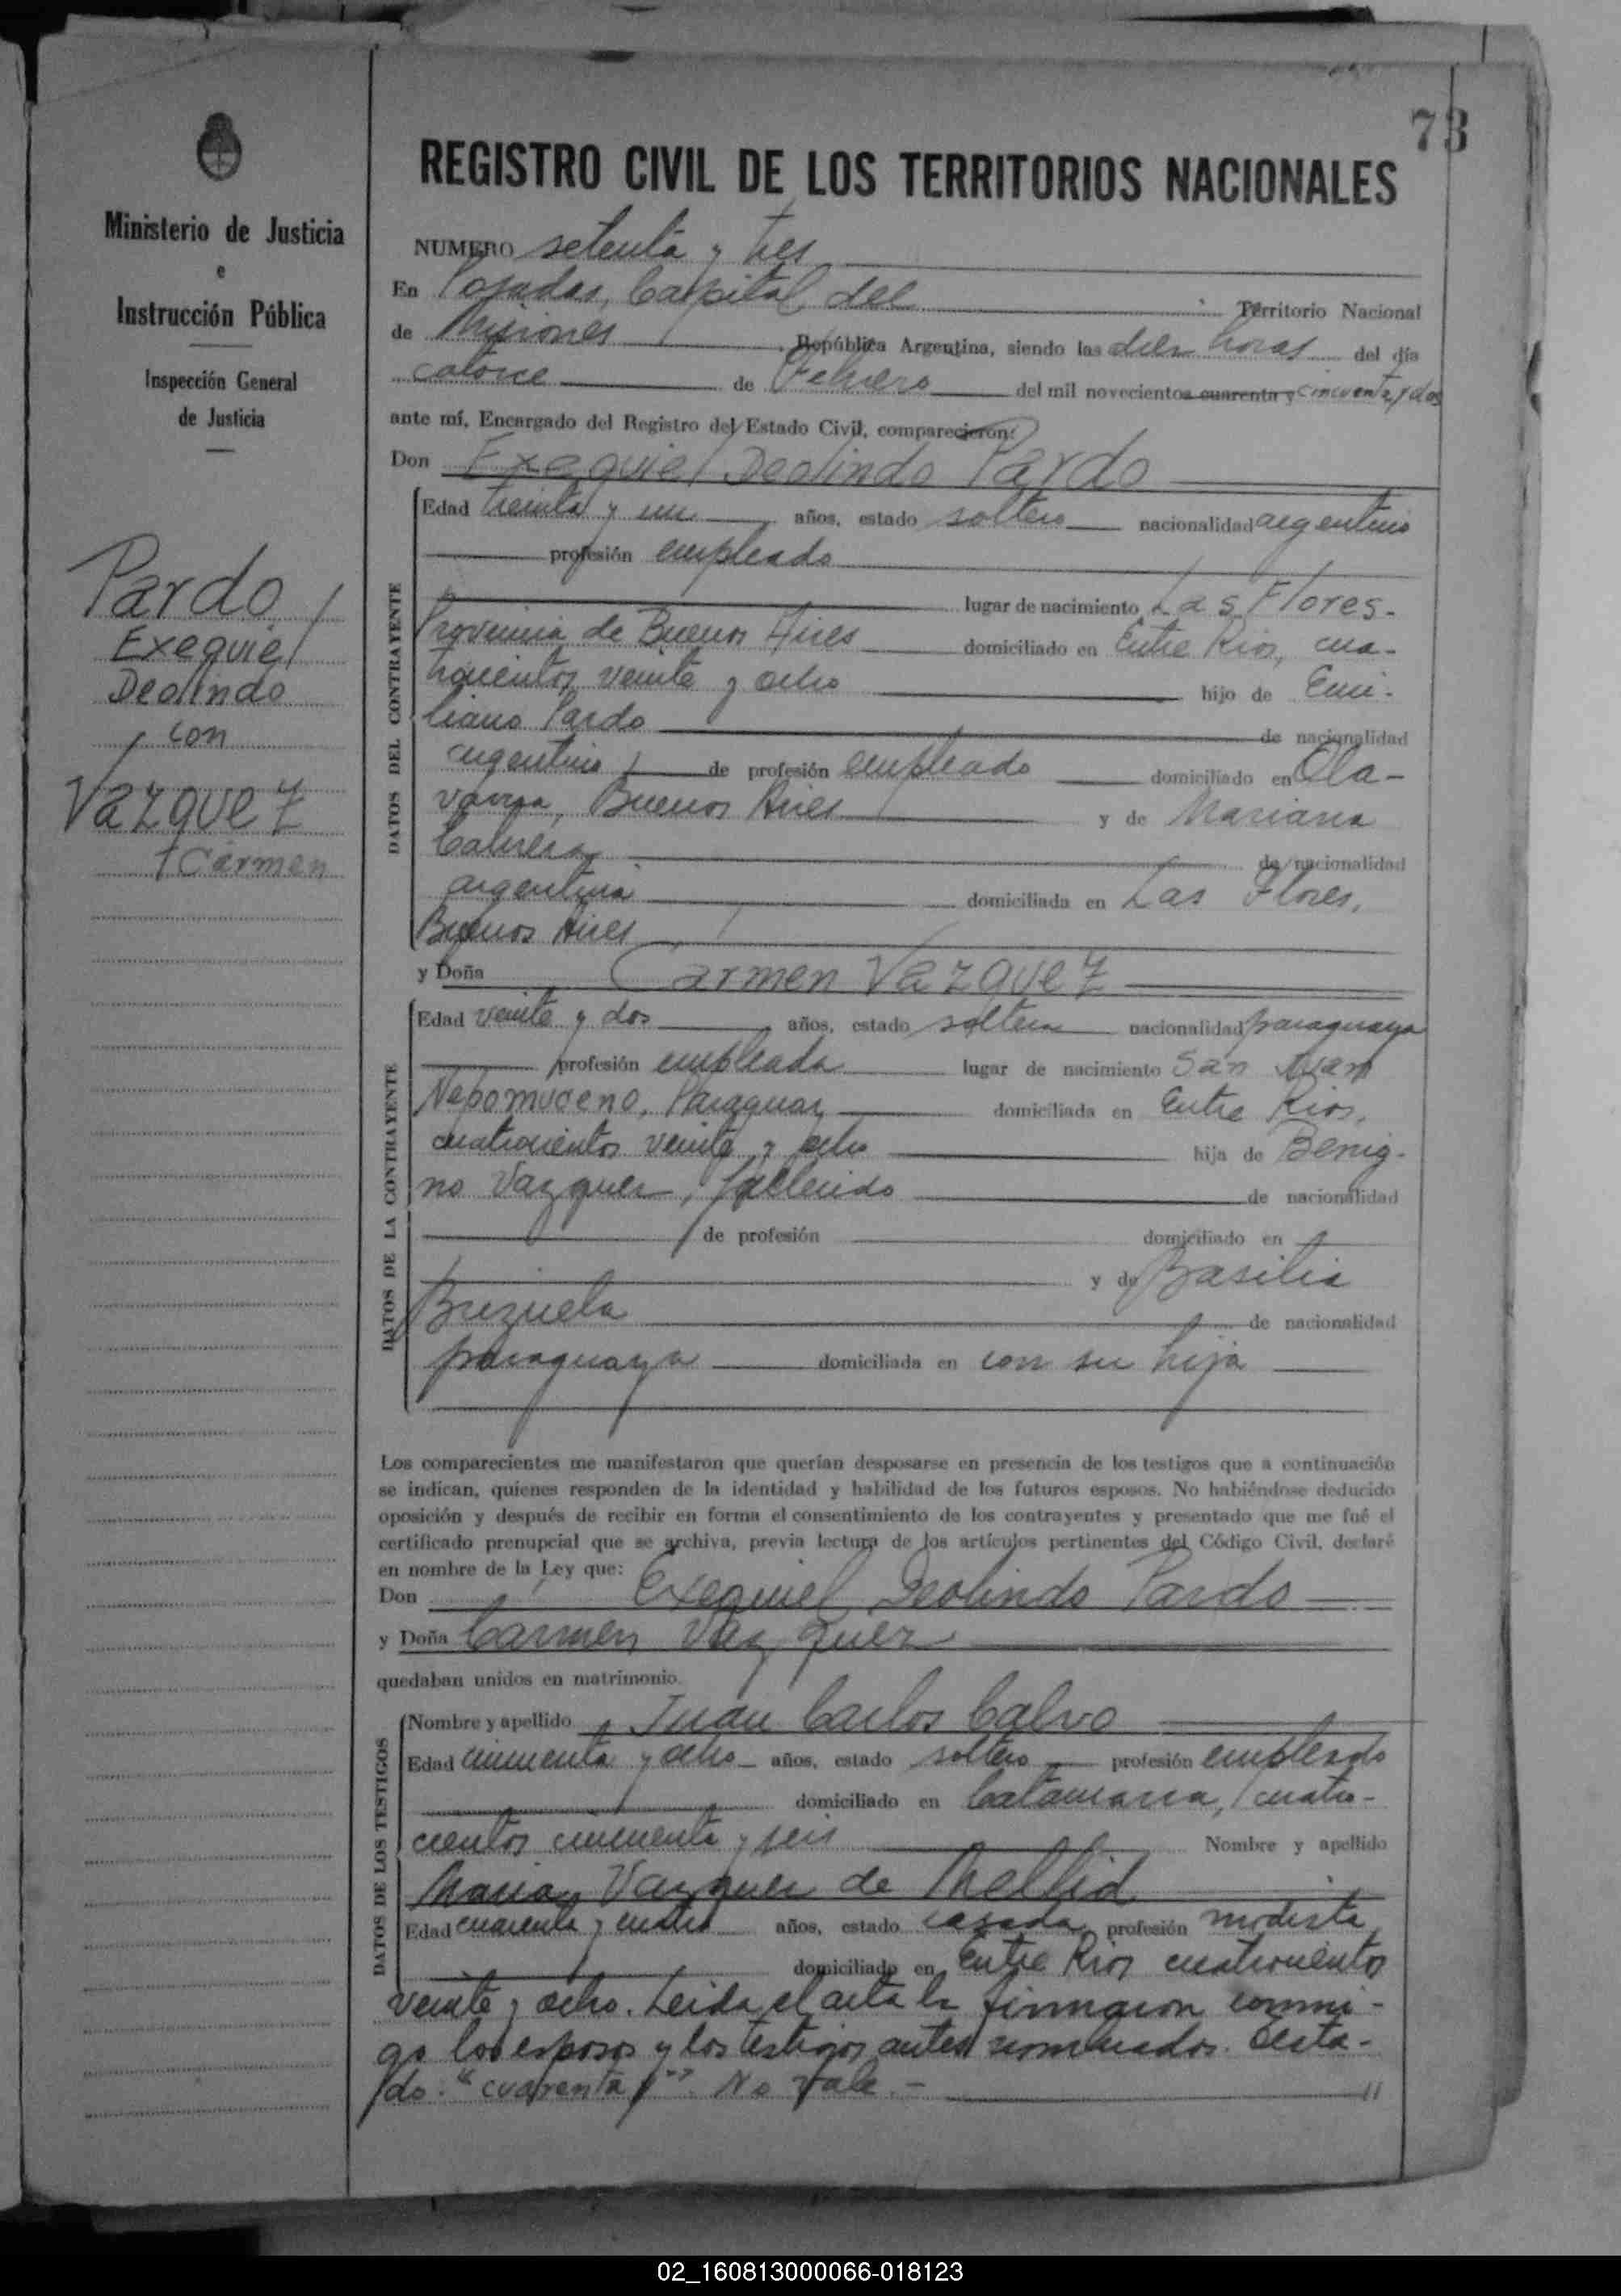 73
Ministerio de Justicia
e
Instrucción Pública
Inspección General
de Justicia
Pardo
Exequiel
Deolindo
con
Vazquez
Carmen
REGISTRO CIVIL DE LOS TERRITORIOS NACIONALES
NUMERO setenta y tres
En Posadas, Capital del Territorio Nacional
de Misiones República Argentina, siendo las diez horas del día
catorce de Febrero del mil novecientos cuarenta y cincuenta y dos
ante mí, Encargado del Registro del Estado Civil, comparecieron:
Don Exequiel Deolindo Pardo
DATOS DEL CONTRAYENTE
Edad treinta y un años, estado soltero nacionalidad argentino
profesión empleado
lugar de nacimiento Las Flores-
Provincia de Buenos Aires domiciliado en Entre Rios, cua-
trocientos veinte y ocho hijo de Emi-
liano Pardo de nacionalidad
argentino de profesión empleado domiciliado en Ola-
varria, Buenos Aires y de Mariana
Cabrera de nacionalidad
argentina domiciliada en Las Flores,
Buenos Aires
y Doña Carmen Vazquez
DATOS DE LA CONTRAYENTE
Edad veinte y dos años, estado soltera nacionalidad paraguaya
profesión empleada lugar de nacimiento San Juan
Nepomuceno, Paraguay domiciliada en Entre Rios,
cuatrocientos veinte y ocho hija de Benig-
no Vazquez, fallecido de nacionalidad
de profesión domiciliado en
y de Basilia
Brizuela de nacionalidad
paraguaya domiciliada en con su hija
Los comparecientes me manifestaron que querían desposarse en presencia de los testigos que a continuación
se indican, quienes responden de la identidad y habilidad de los futuros esposos. No habiéndose deducido
oposición y después de recibir en forma el consentimiento de los contrayentes y presentado que me fué el
certificado prenupcial que se archiva, previa lectura de los artículos pertinentes del Código Civil, declaré
en nombre de la Ley que:
Don Exequiel Deolindo Pardo
y Doña Carmen Vazquez
quedaban unidos en matrimonio.
DATOS DE LOS TESTIGOS
Nombre y apellido Juan Carlos Calvo
Edad cincuenta y ocho años, estado soltero profesión empleado
domiciliado en Catamarca, cuatro-
cientos cincuenta y seis Nombre y apellido
Maria Vazquez de Mellid
Edad cuarenta y cuatro años, estado casada profesión modista
domiciliado en Entre Rios cuatrocientos
veinte y ocho. Leida el acta la firmaron conmi-
go los esposos y los testigos antes nombrados. Testa-
do: "cuarenta y" No vale.-
02_160813000066-018123